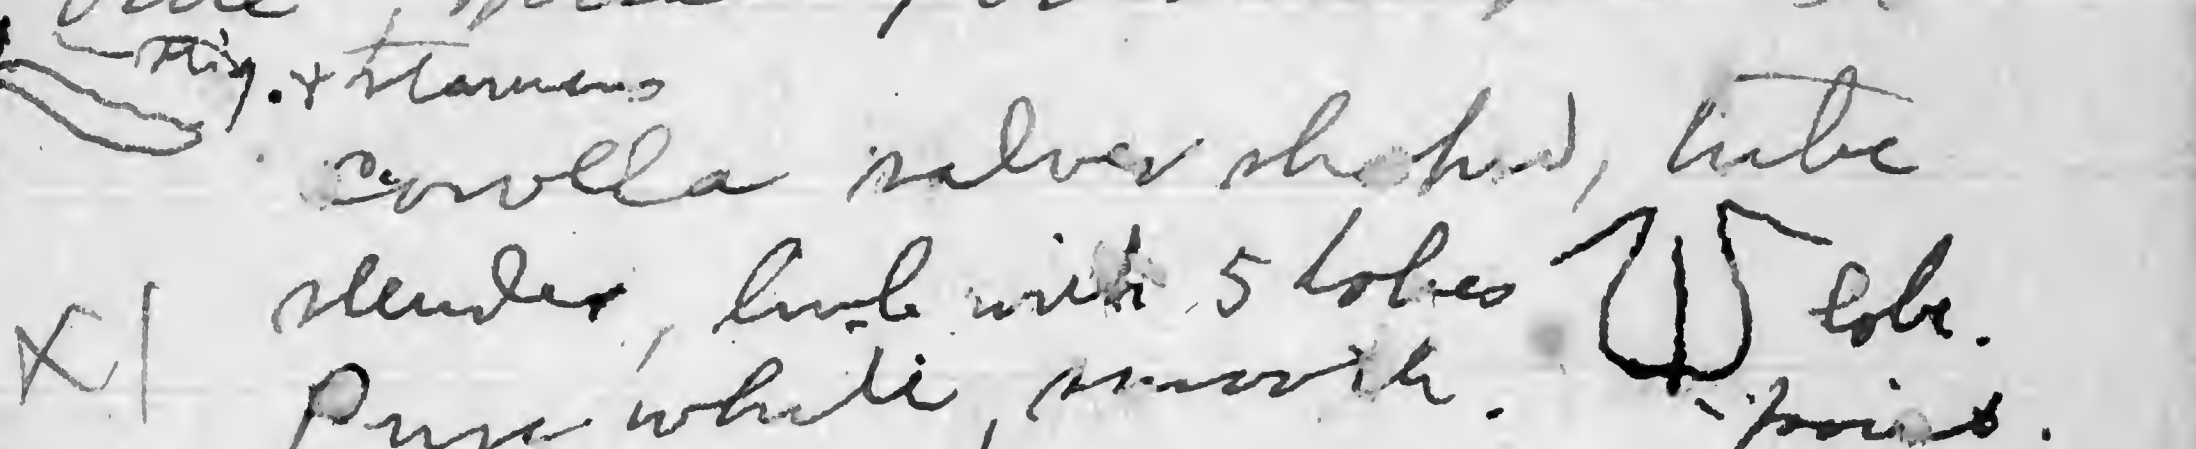 stig. & stamens
corolla salver shaped, tube
slender, limb with 5 lobes
lobe.
Pure white, smooth.
point.
X|